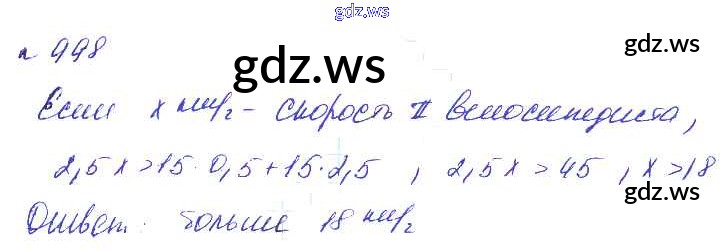 gdz.ws
n 998
gdz.ws
gdz.ws
Если x км/г - скорость II велосипедиста,
2,5x > 15 · 0,5 + 15 · 2,5 , 2,5x > 45 , x > 18
Ответ: больше 18 км/г
gdz.ws
gdz.ws